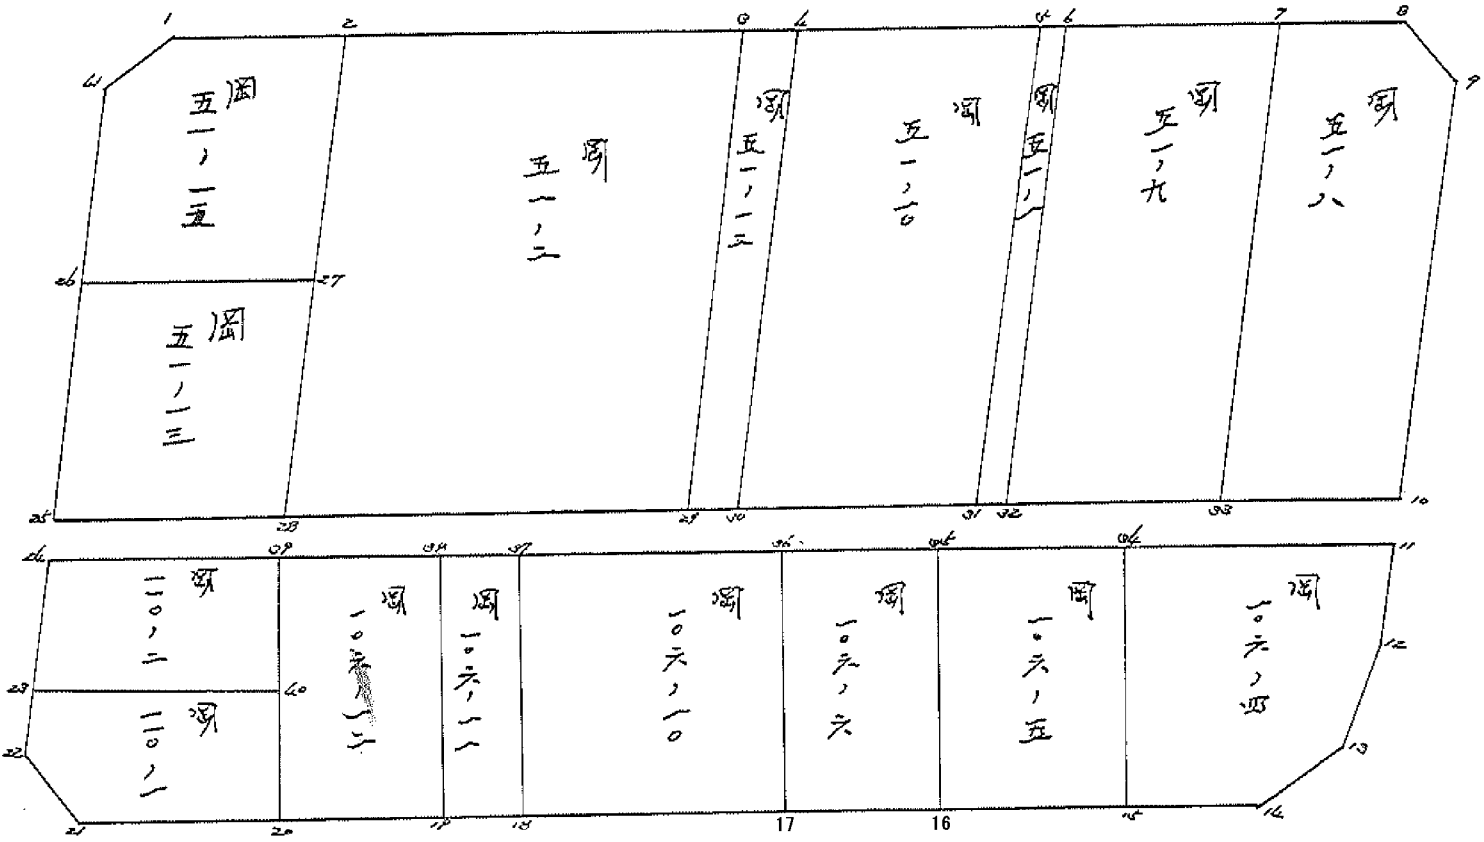 1
2
3
4
5
6
7
8
9
41
岡
五一,一五
岡
五一,二
岡
五一,一二
岡
五一,一〇
岡
五一,一
岡
五一,九
岡
五一,八
26
27
岡
五一,一三
25
28
29
30
31
32
33
10
24
39
38
37
36
35
34
11
岡
一一〇,二
岡
一〇六,一二
岡
一〇六,一一
岡
一〇六,一〇
岡
一〇六,六
岡
一〇六,五
岡
一〇六,四
12
23
40
岡
一一〇,一
22
13
21
20
19
18
17
16
15
14